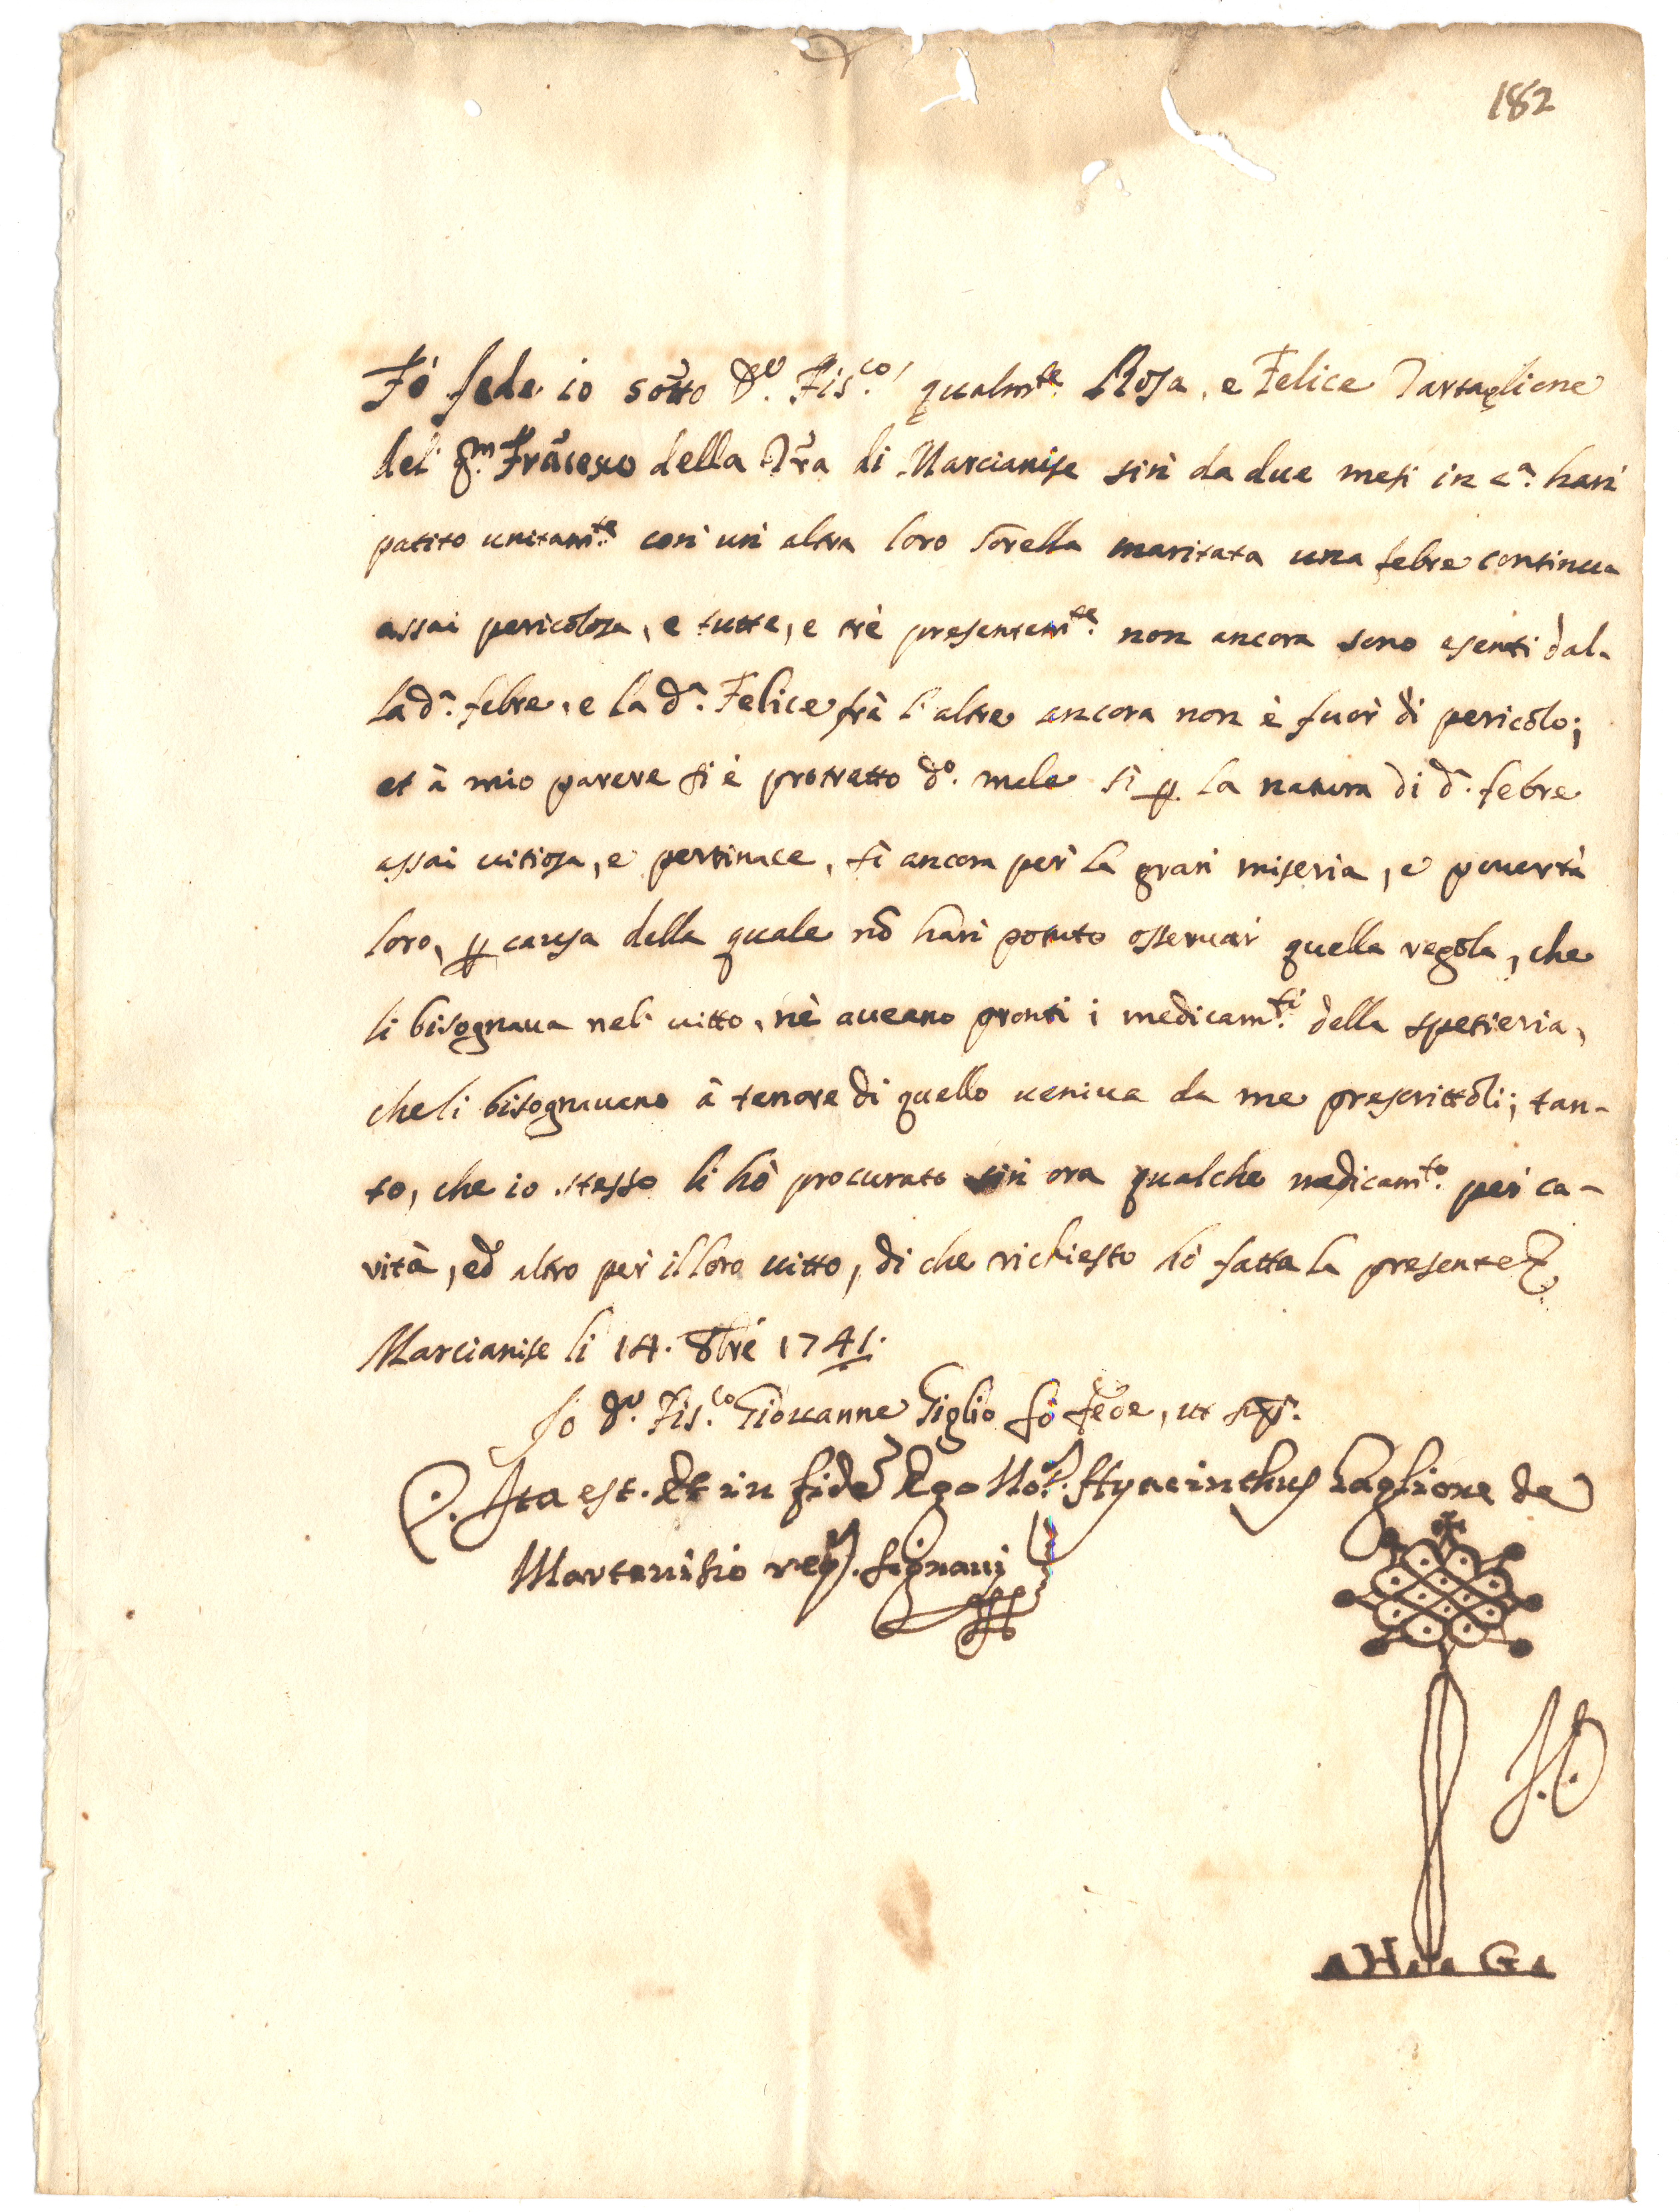 182
Fò fede io sotto Dr. Fis.co qualm.te Rosa, e Felice Tartaglione
del qm. Frãcesco della Trã di Marcianise sin da due mesi in c.a han
patito unitam.te con un altra loro sorella maritata una febre continua
assai pericolosa, e tutte, e trè presentem.te non ancora sono esenti dal-
la d.a febre, e la d.a Felice frà l'altre ancora non è fuor di pericolo;
et à mio parere si è protratto d.o male sì p la natura di d.a febre
assai vitiosa, e pertinace, sì ancora per la gran miseria, e povertà
loro, p causa della quale nõ han potuto osservar quella regola, che
li bisognava nel vitto, nè aveano pronti i medicam.ti della spetieria,
che li bisognavano à tenore di quello veniva da me prescrittoli; tan-
to, che io stesso li hò procurato sin ora qualche medicam.to per ca-
rità, ed altro per il loro vitto, di che richiesto hò fatta la presente
Marcianise li 14. 8bre 1741.
Io Dr. Fis.co Giovanne Giglio fò fede, ut sup.a
Ita est. Et in fidẽ Ego Not. Hyacinthus Taglione de
Martenisio req. signavi
H. G.